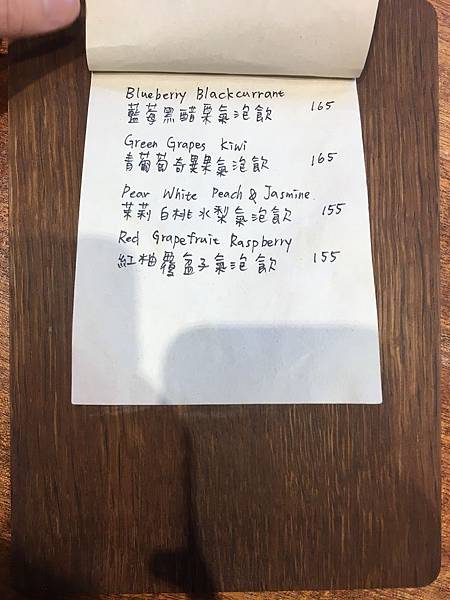 Blueberry Blackcurrant
藍莓黑醋栗氣泡飲 165
Green Grapes Kiwi
青葡萄奇異果氣泡飲 165
Pear White Peach & Jasmine
茉莉白桃水梨氣泡飲 155
Red Grapefruit Raspberry
紅柚覆盆子氣泡飲 155